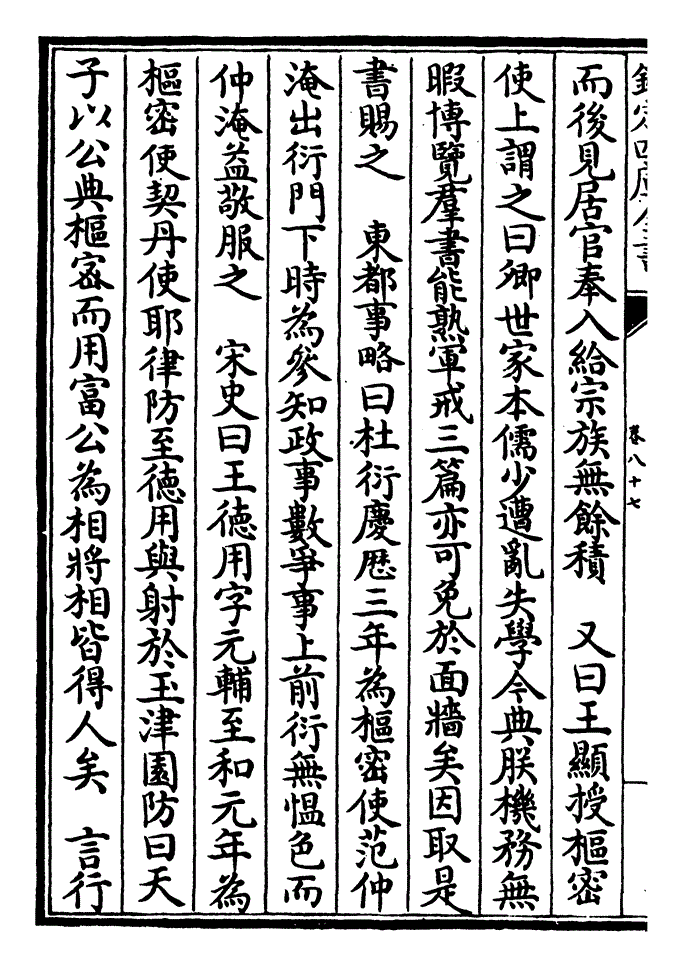 欽定四庫全書
卷八十七
而後見居官奉入給宗族無餘積　又曰王顯授樞密
使上謂之曰卿世家本儒少遭亂失學今典朕機務無
暇博覽羣書能熟軍戒三篇亦可免於面牆矣因取是
書賜之　東都事略曰杜衍慶歴三年為樞密使范仲
淹出衍門下時為參知政事數爭事上前衍無愠色而
仲淹益敬服之　宋史曰王德用字元輔至和元年為
樞密使契丹使耶律防至德用與射於玉津園防曰天
子以公典樞密而用富公為相將相皆得人矣　言行